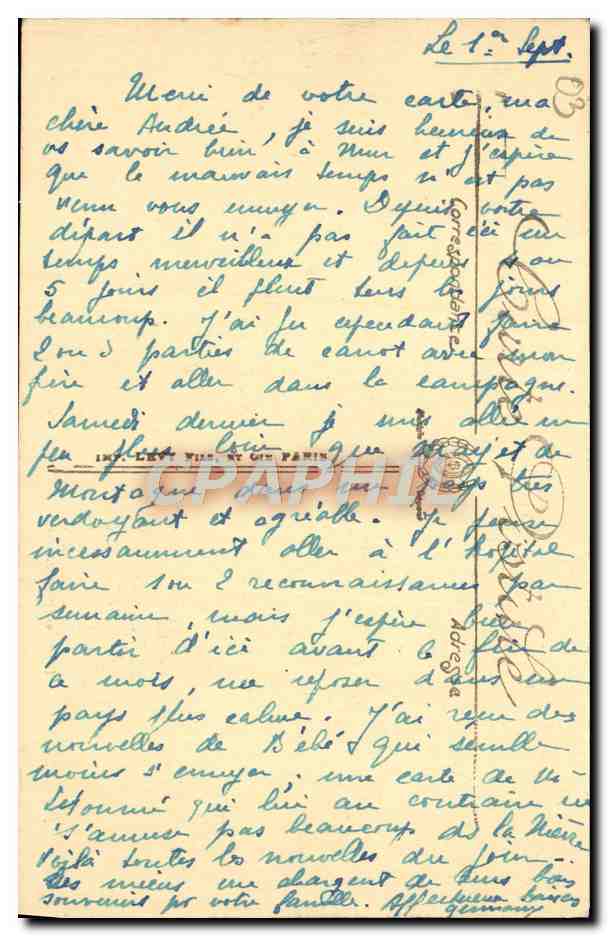 Le 1er Sept.
03
Merci de votre carte, ma
chère Andrée, je suis heureuse de
vs savoir bien à Mur et j'espère
que le mauvais temps n'est pas
venu vous ennuyer. Depuis votre
départ il n'a pas fait ici un
temps merveilleux et depuis 4 ou
5 jours il pleut tous les jours
beaucoup. J'ai pu cependant faire
2 ou 3 parties de canot avec mon
frère et aller dans la campagne.
Samedi dernier je suis allée un
peu plus loin que
Montagne dans un pays très
verdoyant et agréable. Je pense
incessamment aller à l'hôpital
faire 1 ou 2 reconnaissances par
semaine, mais j'espère bien
partir d'ici avant la fin de
ce mois, me reposer dans un
pays plus calme. J'ai reçu des
nouvelles de Bébé qui semble
moins s'ennuyer, une carte de
qui lui au contraire ne
s'amuse pas beaucoup ds la Nièvre
Voilà toutes les nouvelles du jour.
Les miens me chargent de leurs bons
souvenirs pr votre famille. Affectueux baisers
Germaine
Carte Postale
Correspondance
Adresse
IMP. LEVY FILS ET CIE PARIS
CPARHIL